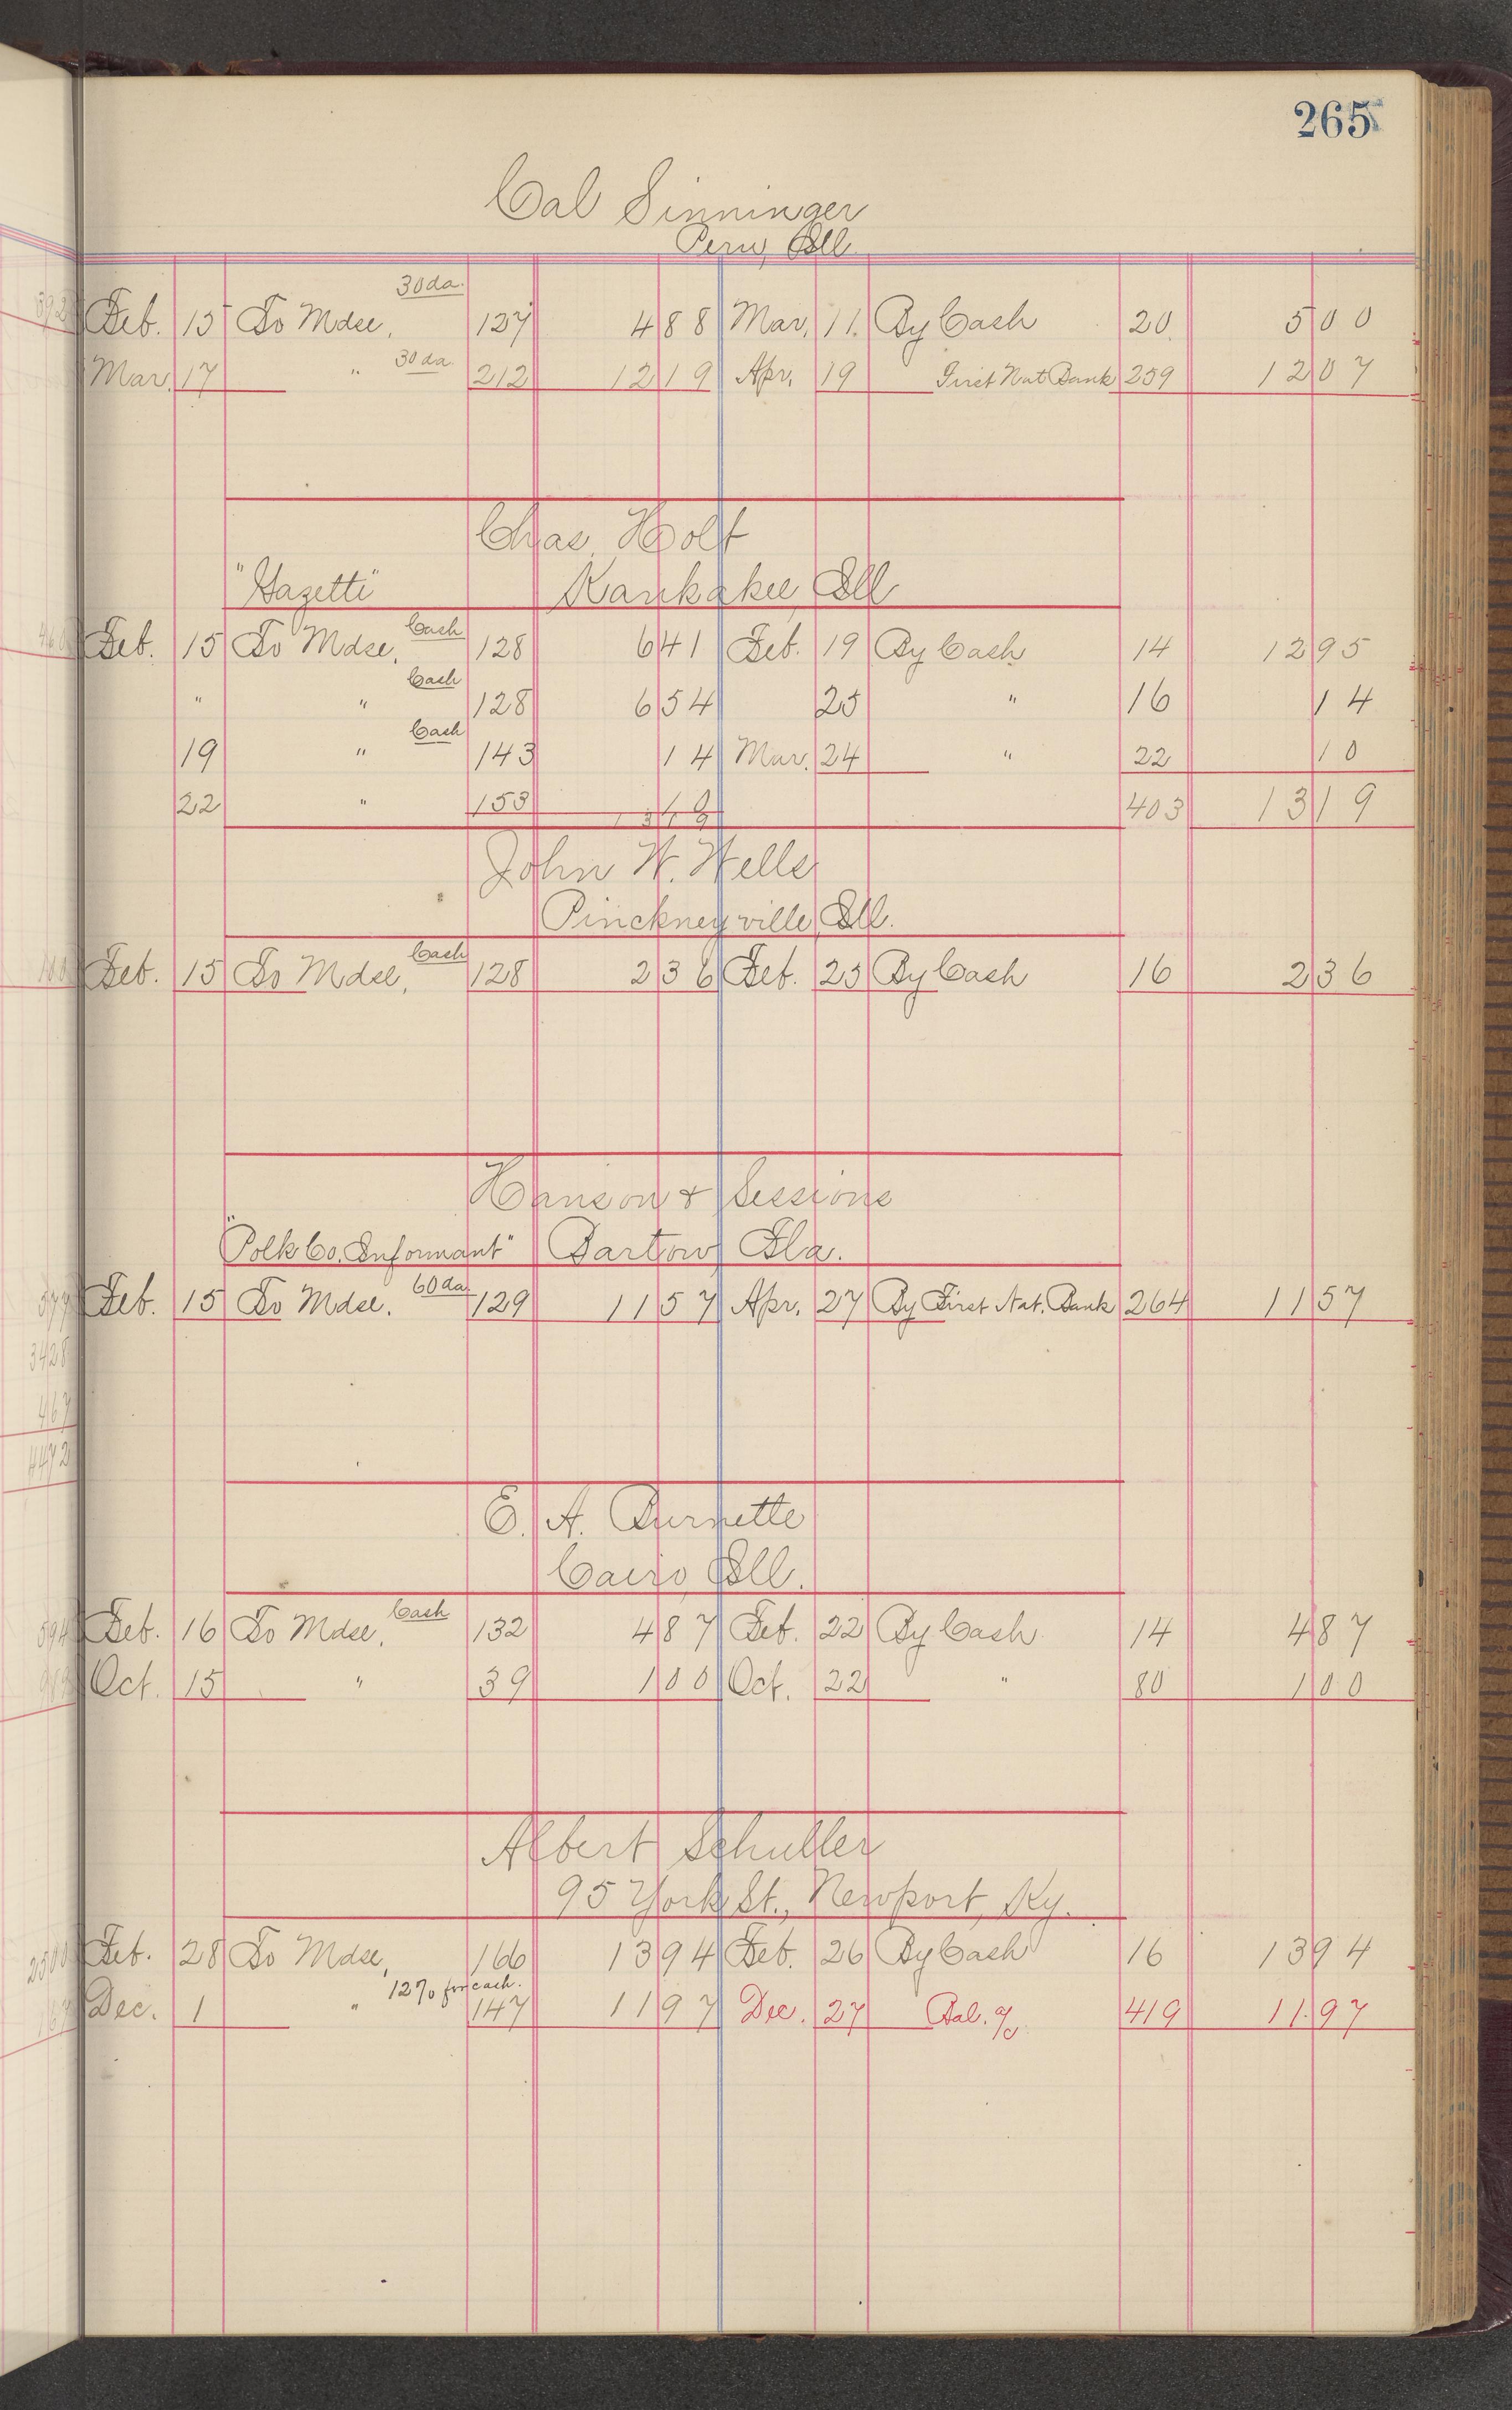 265
Cal Sinninger
Peru, Ill.
30 da.
Feb. 15 To Mdse, 127 4 88 Mar. 11. By Cash 20 5 00
Mar. 17 " 30 da. 212 12 19 Apr. 19 First Nat Bank 259 12 07
Chas. Holt
"Gazette" Kankakee, Ill
Feb. 15 To Mdse, Cash 128 6 41 Feb. 19 By Cash 14 12 95
" " Cash 128 6 54 25 " 16 14
19 " Cash 143 14 Mar. 24 " 22 10
22 " 153 10 403 13 19
13 19
John W. Wells
Pinckneyville, Ill.
Feb. 15 To Mdse, Cash 128 2 36 Feb. 25 By Cash 16 2 36
Hanson & Sessions
"Polk Co. Informant" Bartow, Fla.
Feb. 15 To Mdse. 60 da 129 11 57 Apr. 27 By First Nat. Bank 264 11 57
E. A. Burnette
Cairo, Ill.
Feb. 16 To Mdse. Cash 132 4 87 Feb. 22 By Cash 14 4 87
Oct. 15 " 39 1 00 Oct. 22 " 80 1 00
Albert Schuller
95 York St., Newport, Ky.
Feb. 28 To Mdse, 166 13 94 Feb. 26 By Cash 16 13 94
12% for cash.
Dec. 1 " 147 11 97 Dec. 27 Bal. a/c 419 11.97
3428
467
4472